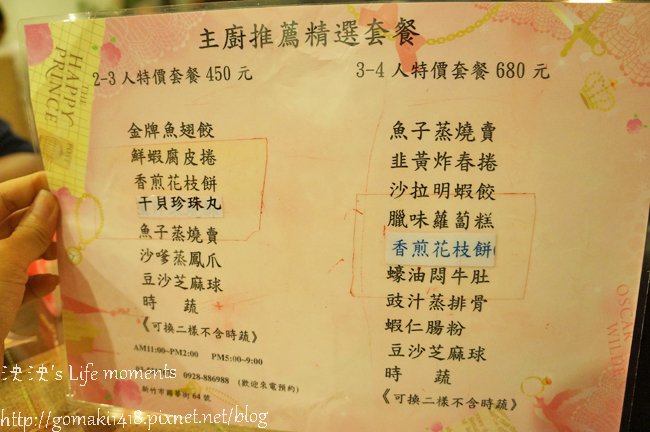 主廚推薦精選套餐
2-3人特價套餐 450 元
金牌魚翅餃
鮮蝦腐皮捲
香煎花枝餅
干貝珍珠丸
魚子蒸燒賣
沙嗲蒸鳳爪
豆沙芝麻球
時 蔬
《可換二樣不含時蔬》
AM11:00~PM2:00 PM5:00~9:00
0928-886988 (歡迎來電預約)
新竹市國華街 64 號
3-4 人特價套餐 680 元
魚子蒸燒賣
韭黃炸春捲
沙拉明蝦餃
臘味蘿蔔糕
香煎花枝餅
蠔油悶牛肚
豉汁蒸排骨
蝦仁腸粉
豆沙芝麻球
時 蔬
《可換二樣不含時蔬》
THE
HAPPY
PRINCE
OSCAR
WILDE
泱泱's Life moments
http://gomaki1418.pixnet.net/blog